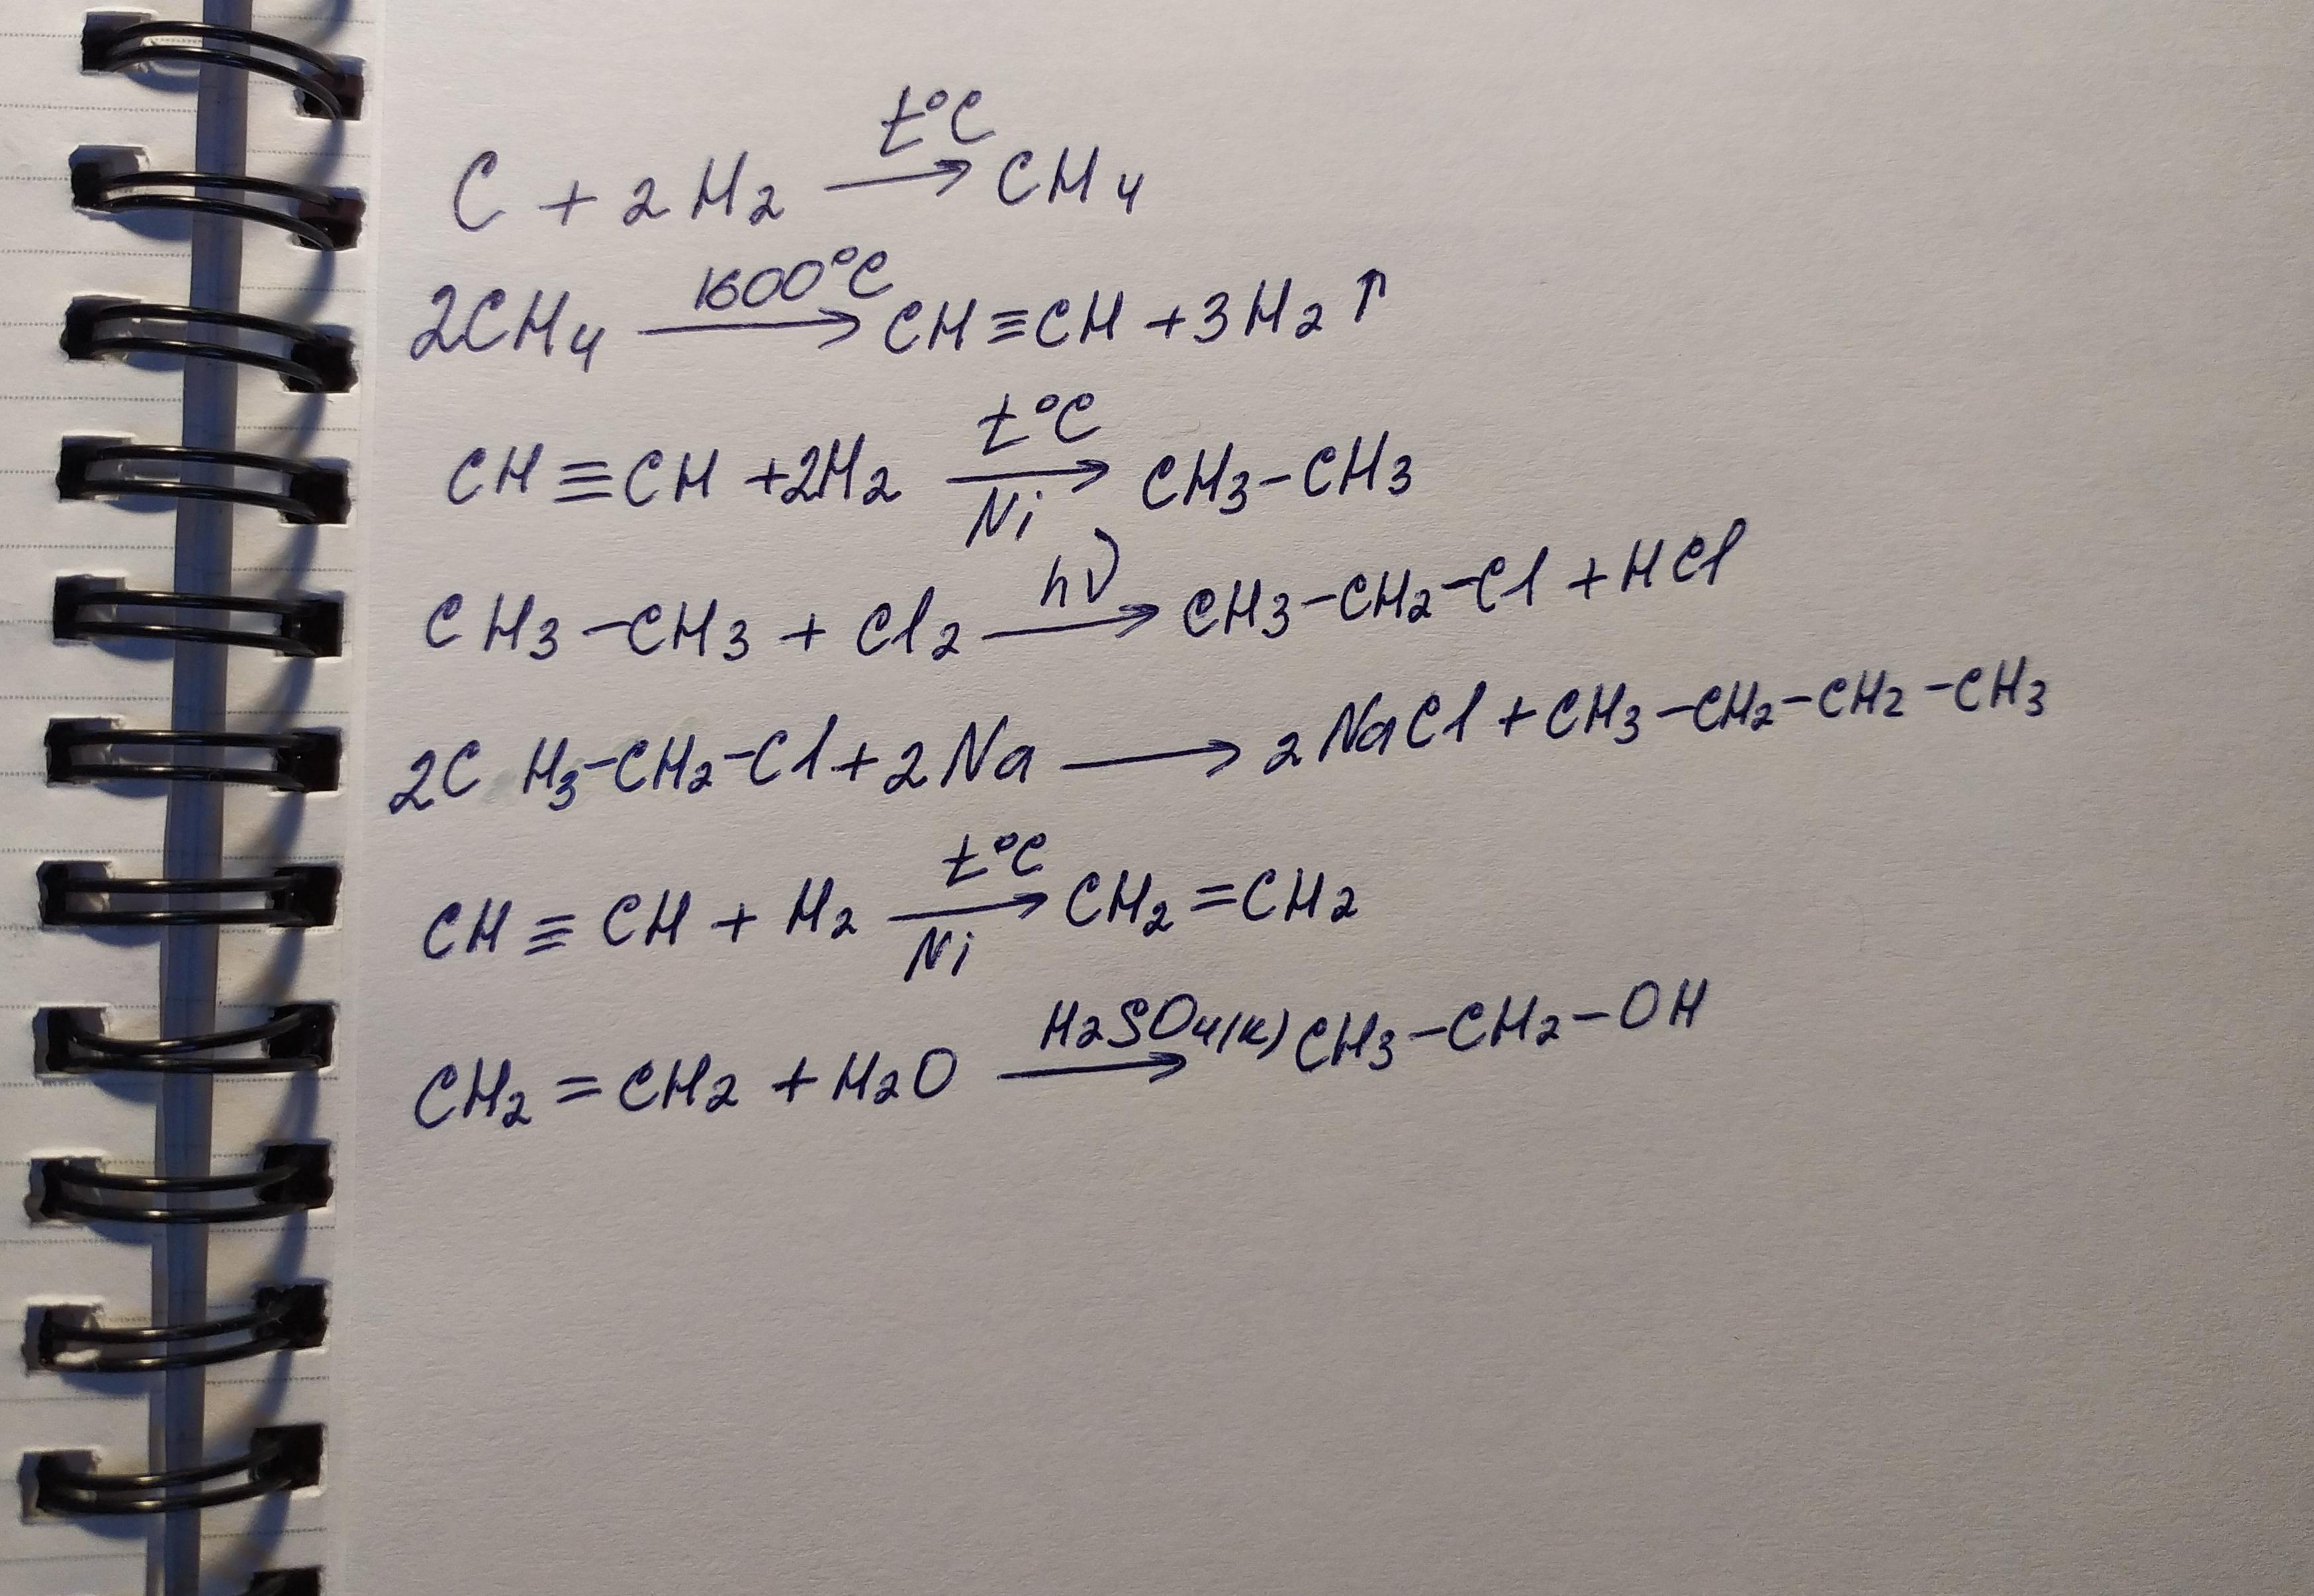 C + 2H₂ —t°C→ CH₄
2CH₄ —1600°C→ CH≡CH + 3H₂↑
CH≡CH + 2H₂ —t°C, Ni→ CH₃–CH₃
CH₃–CH₃ + Cl₂ —hν→ CH₃–CH₂–Cl + HCl
2CH₃–CH₂–Cl + 2Na → 2NaCl + CH₃–CH₂–CH₂–CH₃
CH≡CH + H₂ —t°C, Ni→ CH₂=CH₂
CH₂=CH₂ + H₂O —H₂SO₄(к)→ CH₃–CH₂–OH